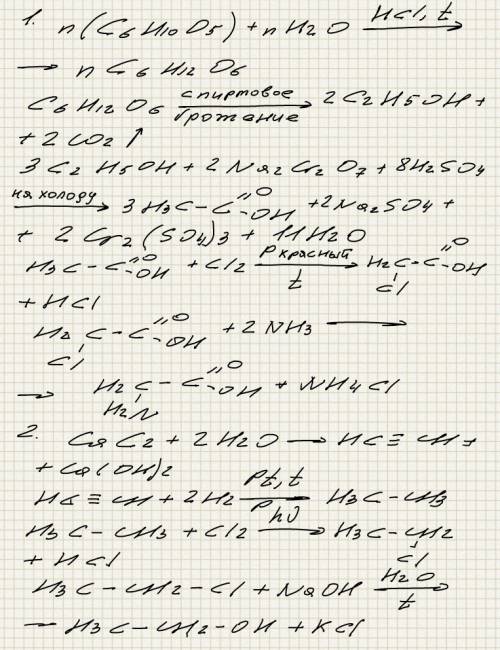 1. n(C6H10O5) + nH2O HCl, t →
→ n C6H12O6
C6H12O6 спиртовое брожание → 2C2H5OH +
+ 2CO2 ↑
3C2H5OH + 2Na2Cr2O7 + 8H2SO4
на холоду → 3H3C-C=O-OH + 2Na2SO4 +
+ 2Cr2(SO4)3 + 11H2O
H3C-C=O-OH + Cl2 P красный t → H2C-C=O-OH
Cl
+ HCl
H2C-C=O-OH + 2NH3 →
Cl
→ H2C-C=O-OH + NH4Cl
H2N
2. CaC2 + 2H2O → HC≡CH +
+ Ca(OH)2
HC≡CH + 2H2 Pt, t P H3C-CH3
H3C-CH3 + Cl2 hν → H3C-CH2
Cl
+ HCl
H3C-CH2-Cl + NaOH H2O t →
→ H3C-CH2-OH + KCl